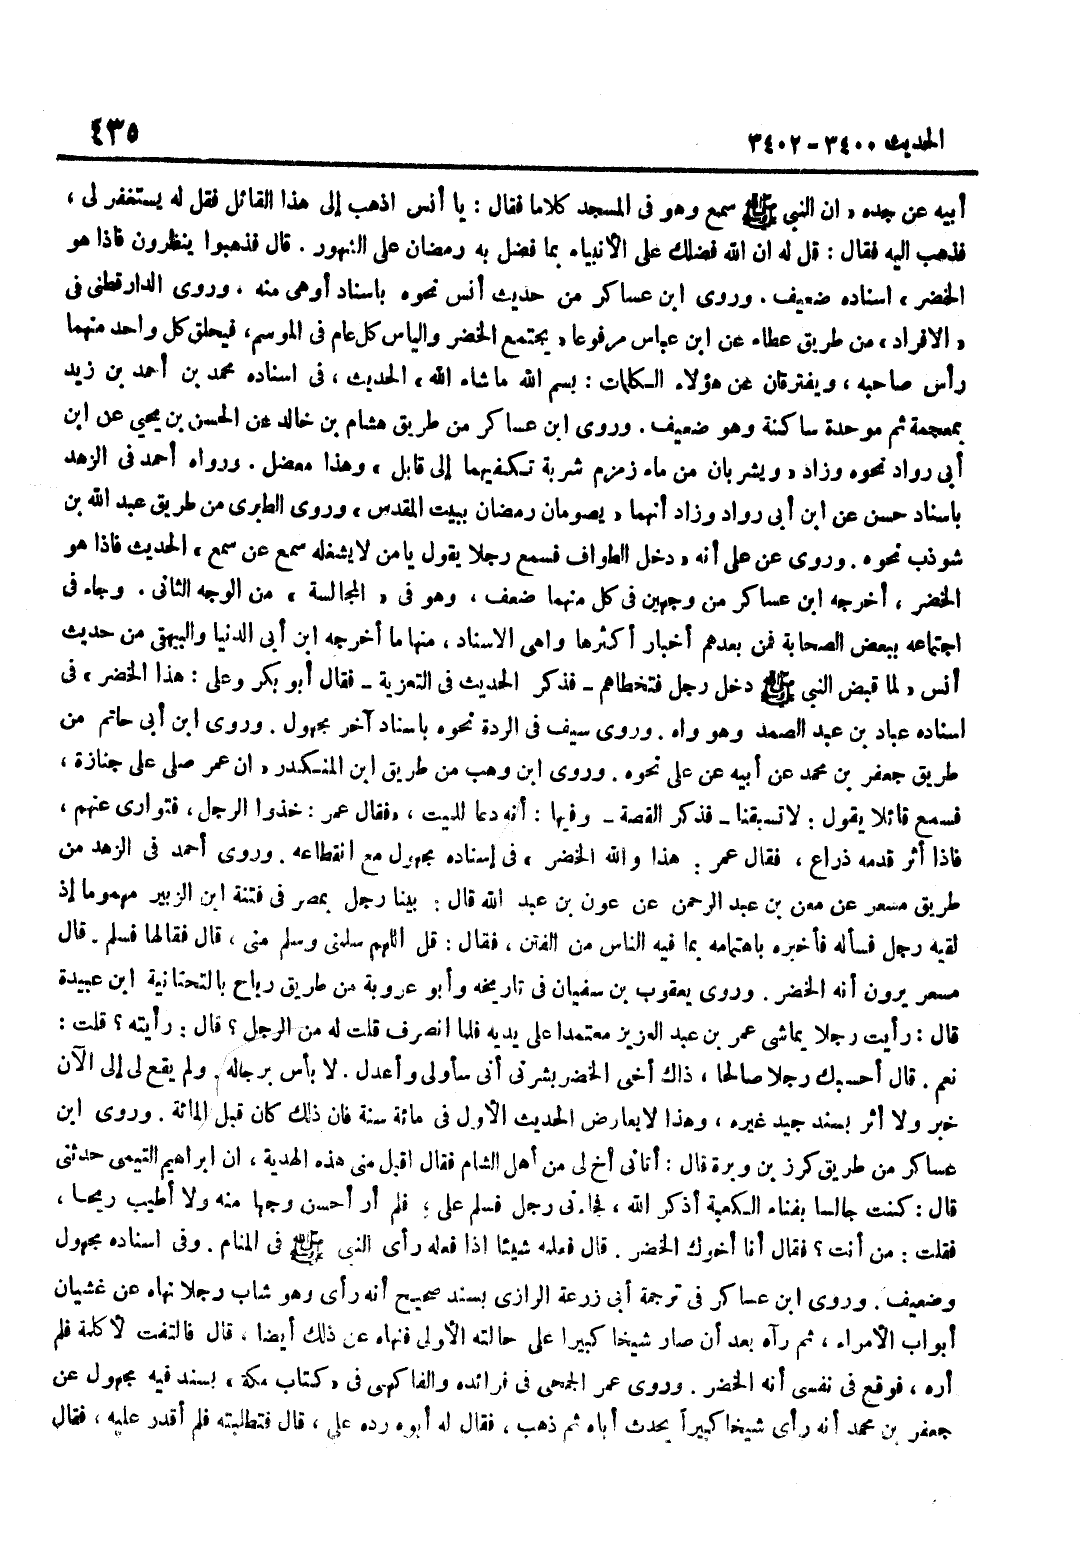 الحديث ٣٤٠٠ - ٣٤٠٢
٤٣٥
أبيه عن جده « ان النبي ﷺ سمع وهو فى المسجد كلاما فقال : يا أنس اذهب إلى هذا القائل فقل له يستغفر لى ،
فذهب اليه فقال : قل له ان الله فضلك على الأنبياء بما فضل به رمضان على الشهور . قال فذهبوا ينظرون فاذا هو
الخضر » اسناده ضعيف . وروى ابن عساكر من حديث أنس نحوه باسناد أوهى منه . وروى الدارقطنى فى
« الافراد » من طريق عطاء عن ابن عباس مرفوعا « يجتمع الخضر والياس كل عام فى الموسم ، فيحلق كل واحد منهما
رأس صاحبه ، ويفترقان عن هؤلاء الكلمات : بسم الله ما شاء الله » الحديث ، فى اسناده محمد بن أحمد بن زيد
بمعجمة ثم موحدة ساكنة وهو ضعيف . وروى ابن عساكر من طريق هشام بن خالد عن الحسن بن يحيى عن ابن
أبى رواد نحوه وزاد « ويشربان من ماء زمزم شربة تكفيهما إلى قابل » وهذا معضل . ورواه أحمد فى الزهد
باسناد حسن عن ابن أبى رواد وزاد أنهما « يصومان رمضان ببيت المقدس » وروى الطبرى من طريق عبد الله بن
شوذب نحوه . وروى عن على أنه « دخل الطواف فسمع رجلا يقول يا من لا يشغله سمع عن سمع » الحديث فاذا هو
الخضر ، أخرجه ابن عساكر من وجهين فى كل منهما ضعف ، وهو فى « المجالسة » من الوجه الثانى . وجاء فى
اجتماعه ببعض الصحابة فمن بعدهم أخبار أكثرها واهى الاسناد ، منها ما أخرجه ابن أبى الدنيا والبيهقى من حديث
أنس « لما قبض النبي ﷺ دخل رجل فتخطاهم - فذكر الحديث فى التعزية - فقال أبو بكر وعلى : هذا الخضر » فى
اسناده عباد بن عبد الصمد وهو واه . وروى سيف فى الردة نحوه باسناد آخر مجهول . وروى ابن أبى حاتم من
طريق جعفر بن محمد عن أبيه عن على نحوه . وروى ابن وهب من طريق ابن المنكدر « ان عمر صلى على جنازة ،
فسمع قائلا يقول : لا تسبقنا - فذكر القصة - وفيها : أنه دعا للميت ، فقال عمر : خذوا الرجل ، فتوارى عنهم ،
فاذا أثر قدمه ذراع ، فقال عمر : هذا والله الخضر » فى إسناده مجهول مع انقطاعه . وروى أحمد فى الزهد من
طريق مسعر عن معن بن عبد الرحمن عن عون بن عبد الله قال : بينا رجل بمصر فى فتنة ابن الزبير مهموما إذ
لقيه رجل فسأله فأخبره باهتمامه بما فيه الناس من الفتن ، فقال : قل اللهم سلمنى وسلم منى ، قال فقالها فسلم . قال
مسعر يرون أنه الخضر . وروى يعقوب بن سفيان فى تاريخه وأبو عروبة من طريق رياح بالتحتانية ابن عبيدة
قال : رأيت رجلا يماشى عمر بن عبد العزيز معتمدا على يديه فلما انصرف قلت له من الرجل ؟ قال : رأيته ؟ قلت :
نعم . قال أحسبك رجلا صالحا ، ذاك أخى الخضر بشرنى أنى سأولى وأعدل . لا بأس برجاله . ولم يقع لى إلى الآن
خبر ولا أثر بسند جيد غيره ، وهذا لا يعارض الحديث الأول فى مائة سنة فان ذلك كان قبل المائة . وروى ابن
عساكر من طريق كرز بن وبرة قال : أتانى أخ لى من أهل الشام فقال اقبل منى هذه الهدية ، ان ابراهيم التيمى حدثنى
قال : كنت جالسا بفناء الكعبة أذكر الله ، فجاءنى رجل فسلم على ؛ فلم أر أحسن وجها منه ولا أطيب ريحا ،
فقلت : من أنت ؟ فقال أنا أخوك الخضر . قال فعلمه شيئا اذا فعله رأى النبي ﷺ فى المنام . وفى اسناده مجهول
وضعيف . وروى ابن عساكر فى ترجمة أبى زرعة الرازى بسند صحيح أنه رأى وهو شاب رجلا نهاه عن غشيان
أبواب الأمراء ، ثم رآه بعد أن صار شيخا كبيرا على حالته الأولى فنهاه عن ذلك أيضا ، قال فالتفت لأكلمه فلم
أره ، فوقع فى نفسى أنه الخضر . وروى عمر الجمحى فى فرائده والفاكهى فى « كتاب مكة » بسند فيه مجهول عن
جعفر بن محمد أنه رأى شيخا كبيراً يحدث أباه ثم ذهب ، فقال له أبوه رده على ، قال فتطلبته فلم أقدر عليه ، فقال